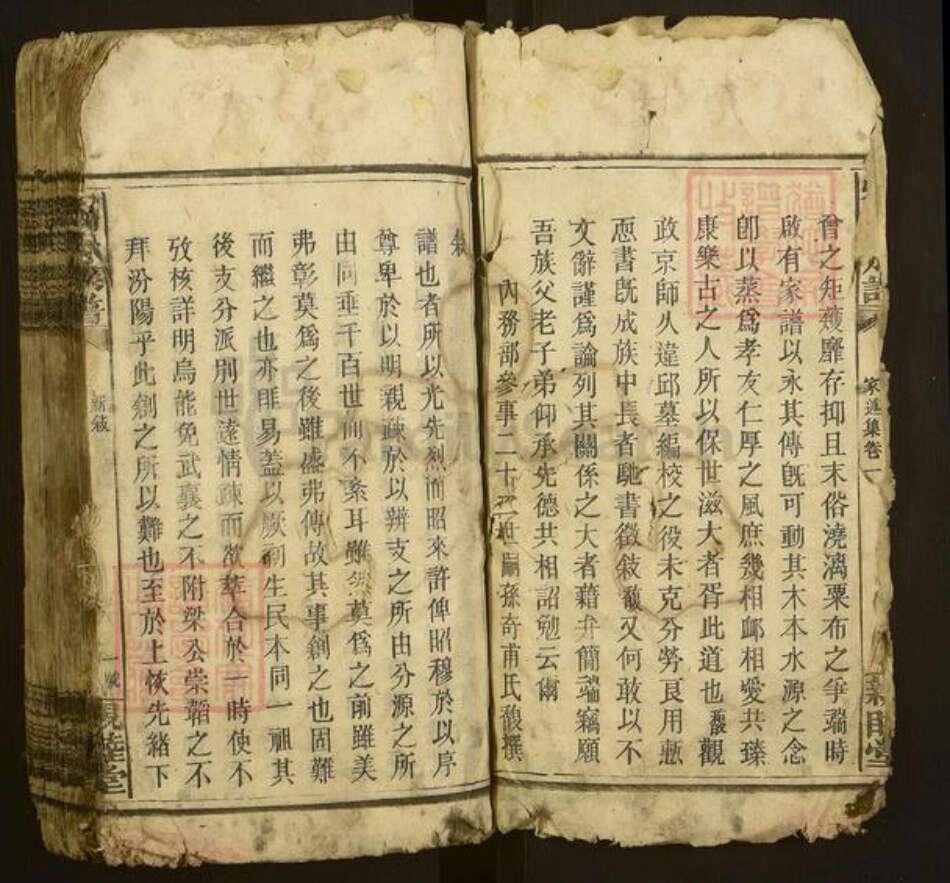 曾之矩矱靡存抑且末俗澆漓粟布之爭端時
啟有家譜以永其傳旣可動其木本水源之念
卽以蒸爲孝友仁厚之風庶幾相䘏相愛共臻
康樂古之人所以保世滋大者胥此道也馥觀
政京師久違邱墓編校之役未克分勞良用慙
恧書旣成族中長者馳書徵敍馥又何敢以不
文辭謹爲論列其關係之大者藉弁簡端竊願
吾族父老子弟仰承先德共相詔勉云爾
內務部參事二十世嗣孫奇甫氏馥撰
家進集卷一
敍
譜也者所以光先烈而昭來許俾昭穆於以序
尊卑於以明親疎於以辨支之所由分源之所
由同垂千百世而不紊耳雖然莫爲之前雖美
弗彰莫爲之後雖盛弗傳故其事創之也固難
而繼之也亦匪易蓋以厥初生民本同一祖其
後支分派別世遠情疎而欲萃合於一時使不
攷核詳明烏能免武襄之不附梁公崇韜之不
拜汾陽乎此創之所以難也至於上恢先緒下
新敍
親睦堂